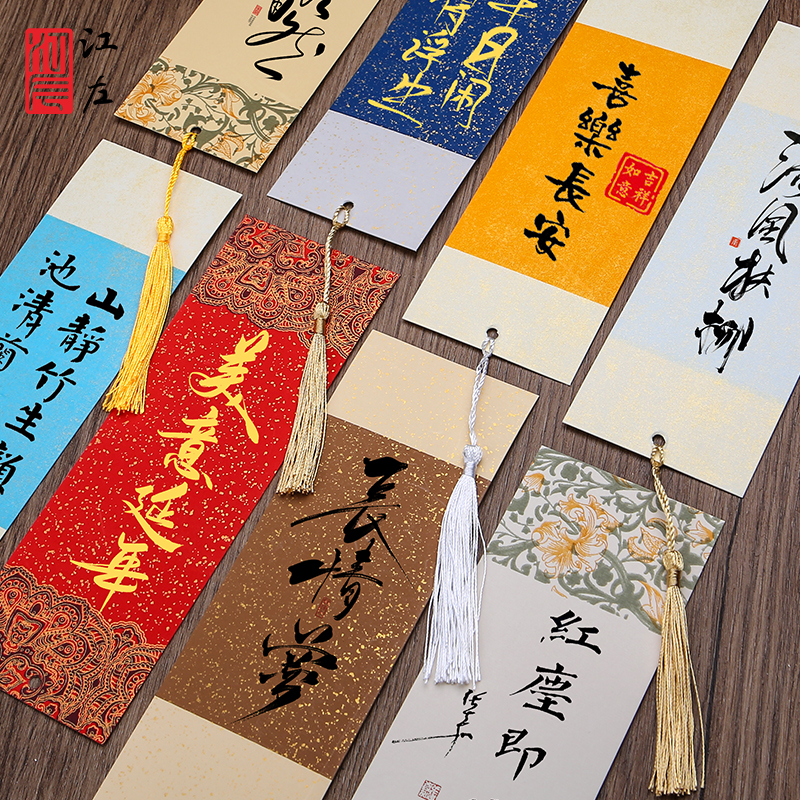 江左
日闲
浮生
喜樂長安
吉祥
如意
風扶柳
山靜竹生
池清蘭
美意延年
長情夢
紅塵即